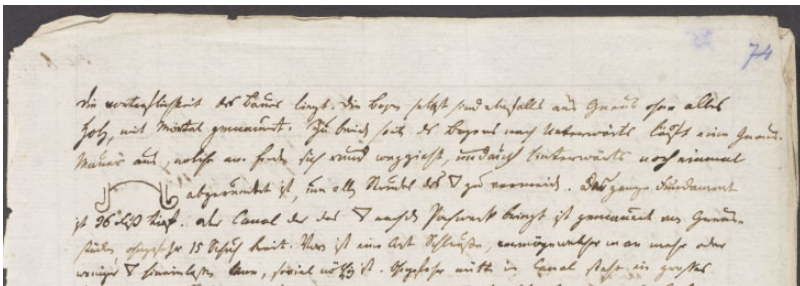 74
die vortreflichkeit des Baues liegt. Die Bogen selbst sind ebenfalls aus Granit ohne alles
Holz, mit Mörtel gemauert. Zu beiden seits des Bogens nach Unterwärts läuft eine
Mauer aus, welche am Ende sich rund wegzieht, und hinterwärts noch einmal
abgerundet ist, um alle des 🜄 zu vermeiden. Das ganze Fundament
ist 36 tief. der Canal der das 🜄 nach bringt ist gemauert von
ohngefehr 15 Schuh breit. ist eine Art Schleuße, vermöge welcher man mehr oder
weniger 🜄 hineinlassen kann, soviel nöthig ist. Ohngefehr mitte im Canal steht ein großes